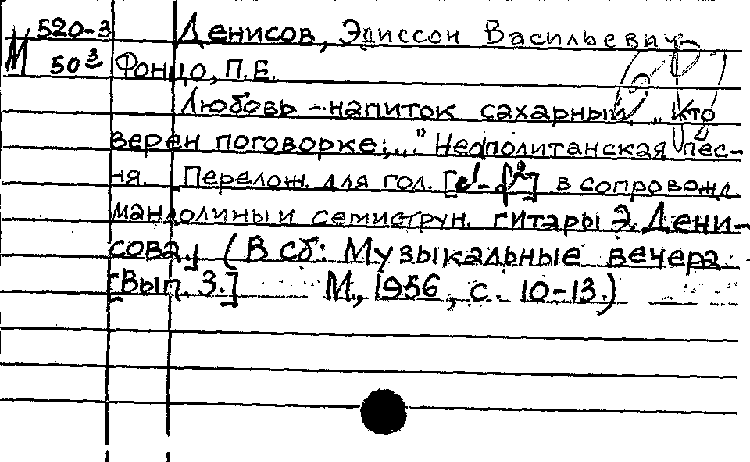 520-3 Денисов, Эдиссон Васильевич
М 50³ Фонцо, П.Е.
Любовь – напиток сахарный „Кто
верен поговорке;..." Неаполитанская пес-
ня. Перелож. для гол. [e¹-f²] в сопровожд.
мандолины и семиструн. гитары Э. Дени-
сова.] (В сб: Музыкальные вечера
[Вып. 3.] М., 1956, с. 10-13.)